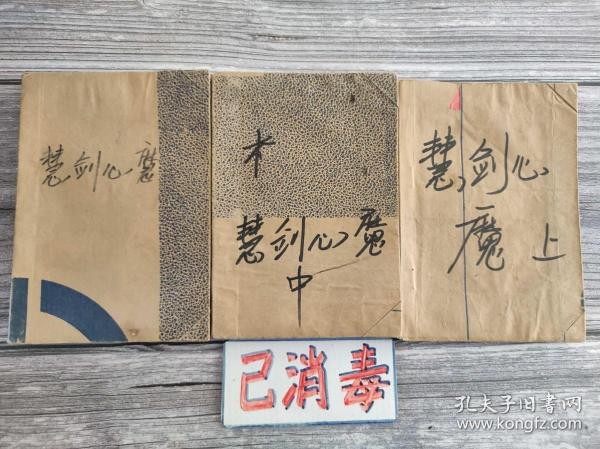 慧剑心魔
慧剑心魔
中
慧剑心
魔上
已消毒
孔夫子旧书网
www.kongfz.com